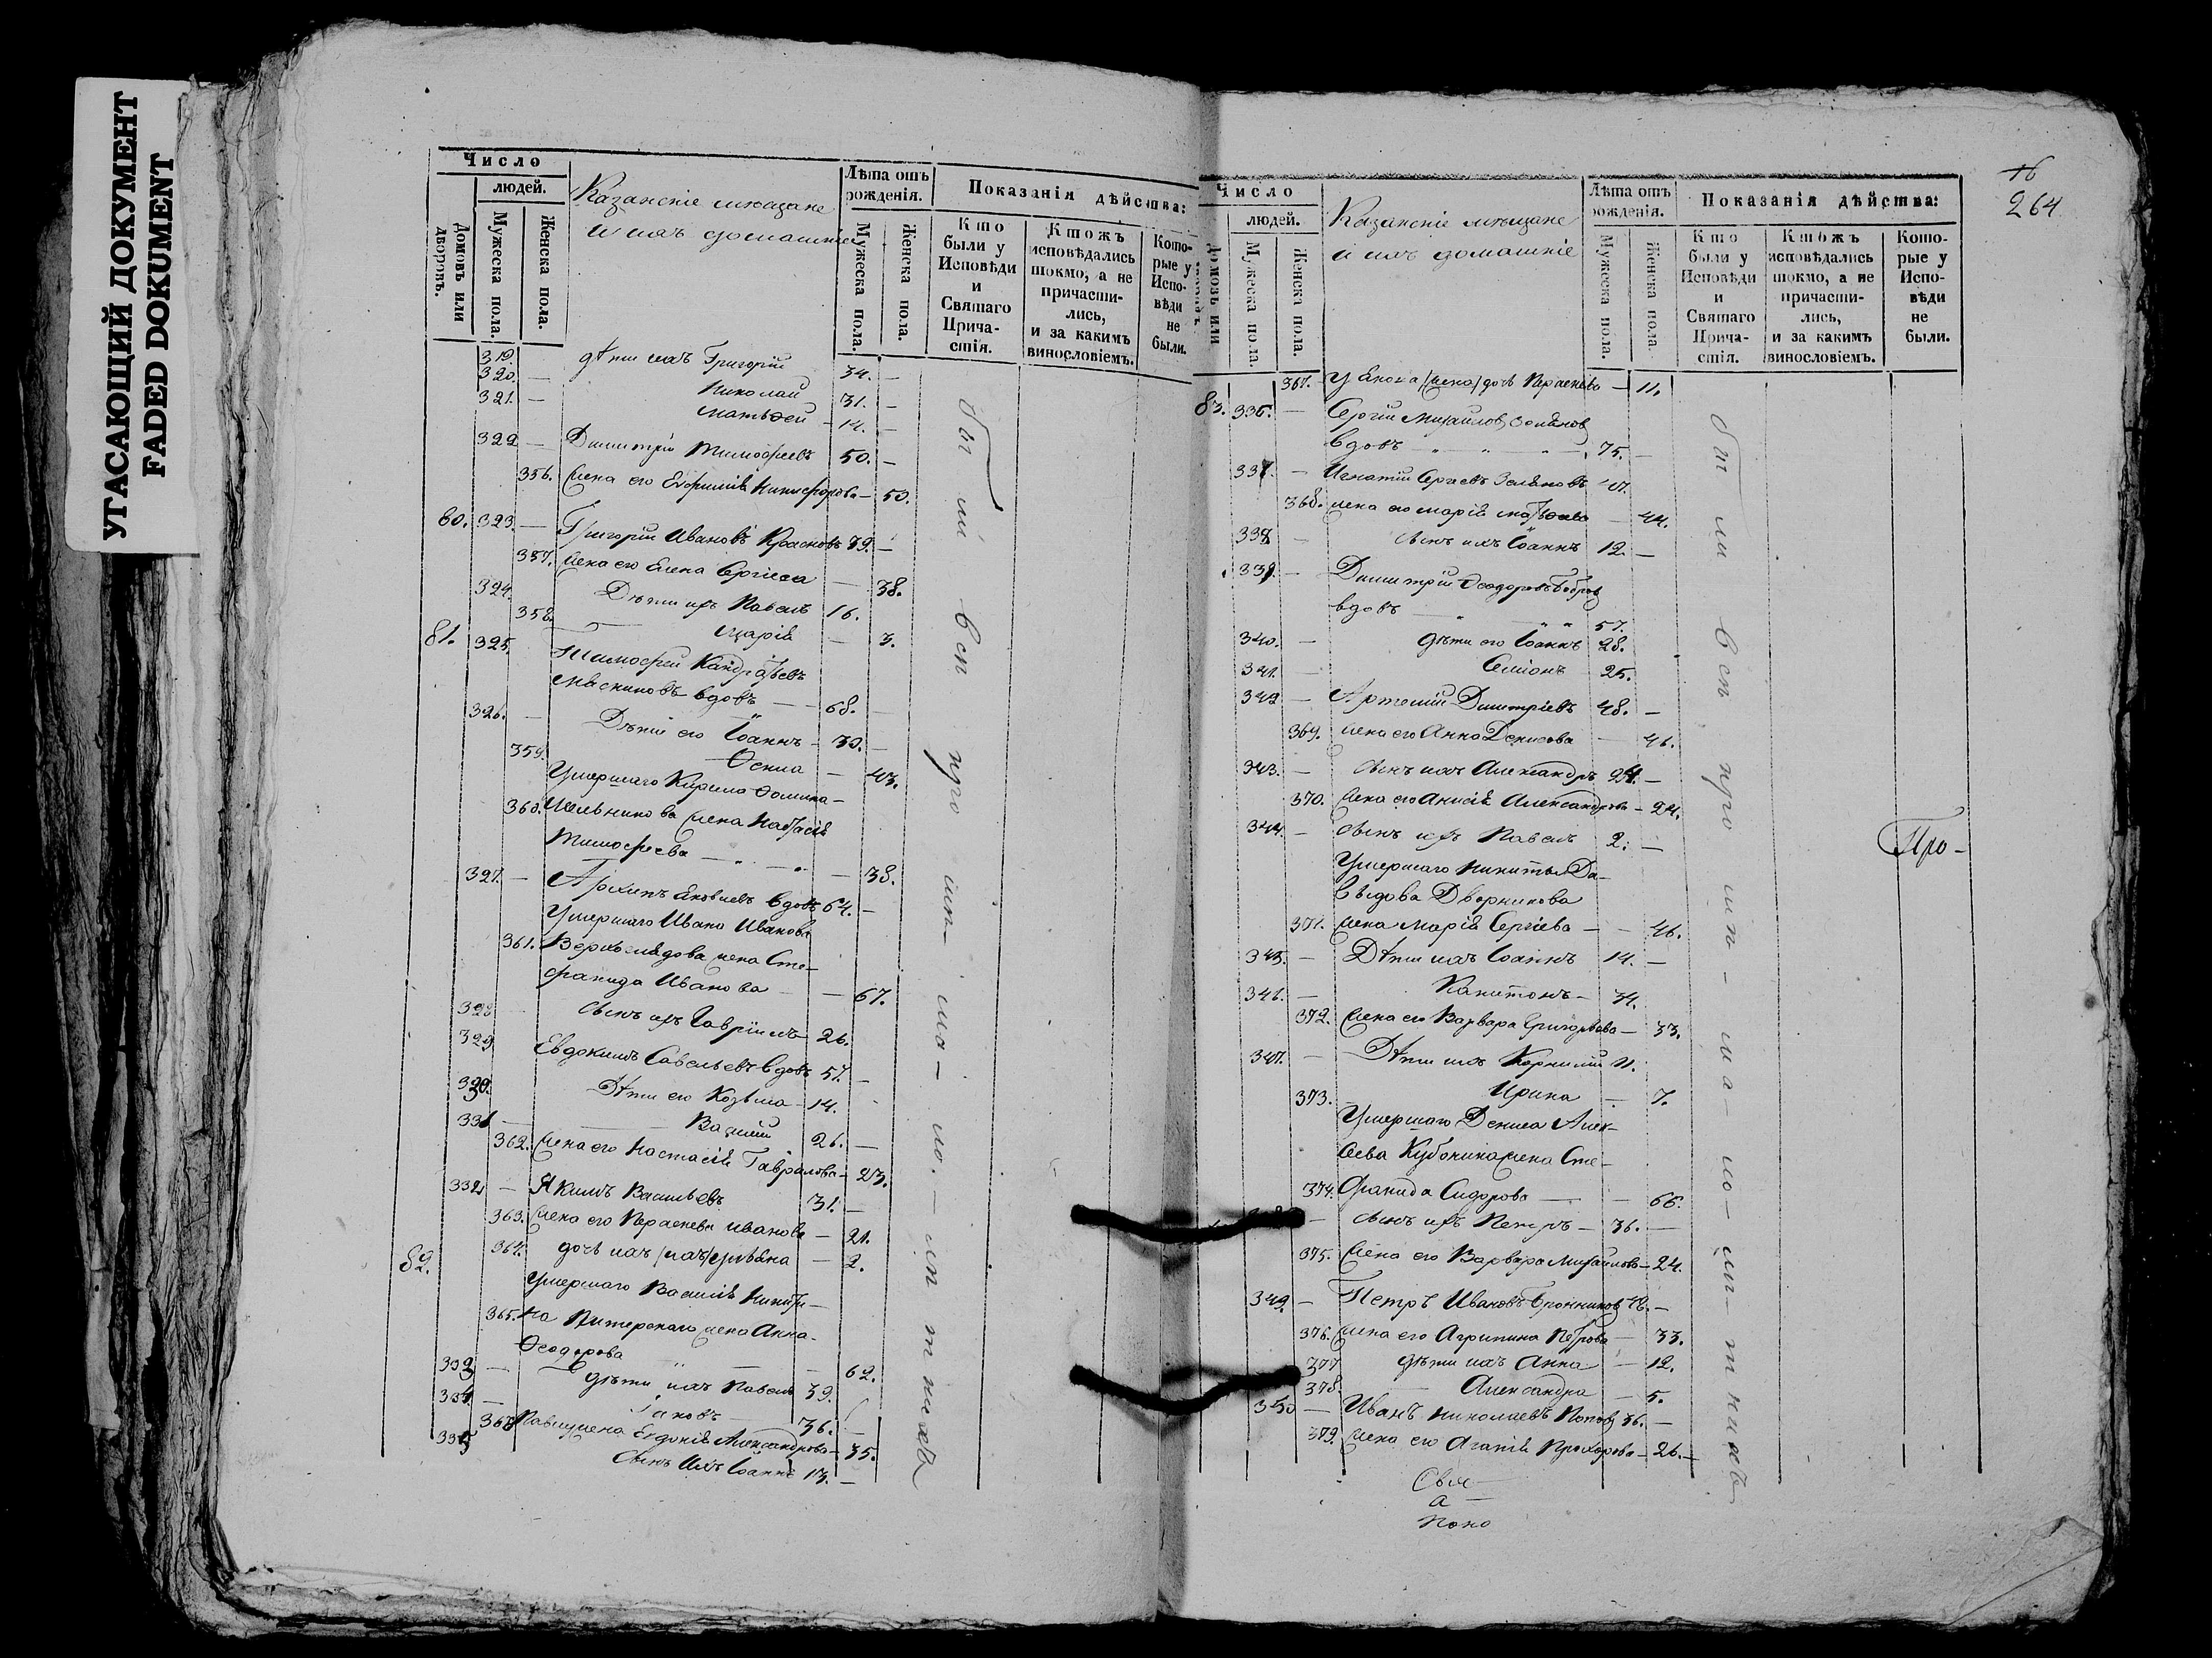 УГАСАЮЩИЙ ДОКУМЕНТ
FADED DOKUMENT
Число
людей.
Домовъ или дворовъ.
Мужеска пола.
Женска пола.
Казанскіе мѣщане
и ихъ домашніе
Лѣта отъ рожденія.
Мужеска пола.
Женска пола.
Показанія дѣйства:
Кто были у Исповѣди и Святаго Причастія.
Ктожъ исповѣдались токмо, а не причастились, и за какимъ винословіемъ.
Которые у Исповѣди не были.
319. — дѣти ихъ Григорій 34. —
320. — Николай 31. —
321. — Матьѳей — 14. —
322 — Димитрій Тимофеевъ 50. —
356. жена его Евфимія Никифорова — 50.
80. 323. — Григорій Ивановъ Красновъ 39. —
357. жена его Елена Сергіева — 38.
324. Дѣти ихъ Павелъ 16.
358. Марія — 3.
81. 325. Тимофей Кандратьевъ
вдовъ — 68. —
326. — Дѣти его Іоаннъ — 30. —
359. Ѳекла — 43.
Умершаго Кирила Ѳомина
360. Мельникова жена Настасія
Тимофеева — 38.
327. — Архипъ Яковлевъ вдовъ 64. —
Умершаго Ивана Иванова
361. жена Сте-
фанида Иванова — 67.
328 сынъ ихъ Гавріилъ 26.
329 Евдокимъ Савельевъ вдовъ 57. —
330. Дѣти его Козьма — 14.
331 — Василій 26. —
362. жена его Настасія Гаврилова — 23.
332 — Якимъ Васильевъ 31. —
363. жена его Парасkeва Иванова — 21.
82. 364. дочь ихъ — 2.
Умершаго Василія Никити-
365. на Питерскаго жена Анна
Ѳеодорова — 62.
333 — дѣти ихъ Павелъ 39.
334. — Іаковъ 36. —
Павлу жена Евдокія Александрова — 35.
335 сынъ ихъ Іоаннъ 13. —
бы ли всѣ про ши ма ло лѣ тнихъ
16
264
Число
людей.
Мужеска пола.
Женска пола.
Казанскіе мѣщане
и ихъ домашніе
Лѣта отъ рожденія.
Мужеска пола.
Женска пола.
Показанія дѣйства:
Кто были у Исповѣди и Святаго Причастія.
Ктожъ исповѣдались токмо, а не причастились, и за какимъ винословіемъ.
Которые у Исповѣди не были.
367. дочь Параскева — 11.
83. 336. — Сергій Михайловъ
вдовъ 75. —
337 — Игнатій Сергѣевъ
368. жена его Марія Матьѳеева — 44.
338 — сынъ ихъ Іоаннъ 12. —
339. — Димитрій Ѳеодоровъ Бобров
вдовъ 57.
340. — дѣти его Іоаннъ 28.
341. — Симіонъ 25.
342 — Артемій Димитріевъ 48. —
369. жена его Анна Денисова — 46.
343. — сынъ ихъ Александръ 24. —
370. жена его Анисія Александрова — 24.
344. — сынъ ихъ Павелъ 2. —
Умершаго Никиты Да-
выдова Дворникова
371. жена Марія Сергіева — 46.
345. — Дѣти ихъ Іоаннъ 14. —
346. — Капитонъ — 34.
372. жена его Варвара Григорьева — 33.
347. — Дѣти ихъ Корнилій 11.
373. — Ирина — 7.
Умершаго Дениса Алек-
сѣева жена Сте-
374. фанида Сидорова — 66.
— сынъ ихъ Петръ — 36. —
375. жена его Варвара Михайлова — 24.
349. — Петръ Ивановъ 46. —
376. жена его Агрипина Петрова — 33.
377 дѣти ихъ Анна — 12.
378. Александра — 5.
350 — Иванъ Николаевъ Попов 36. —
379. жена его Агапія Прохорова — 26. —
бы ли всѣ про ши ма ло лѣ тнихъ
Про-
Свя
а
Поко